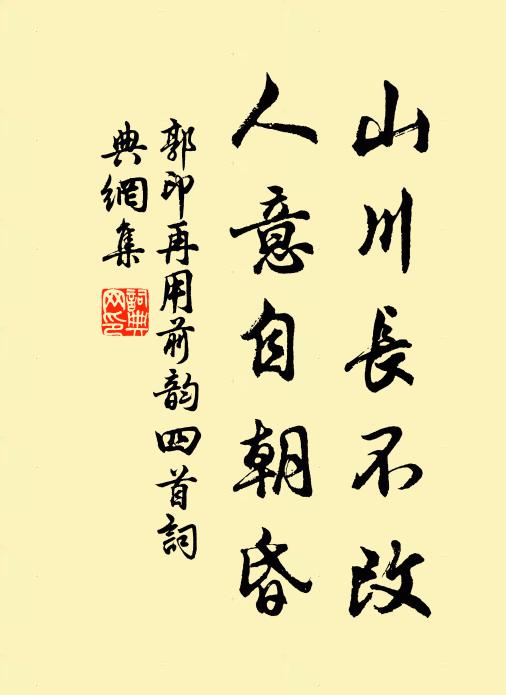 山川長不改
人意自朝昏
郭印再用前韵四首詞
典網集
詞典網印